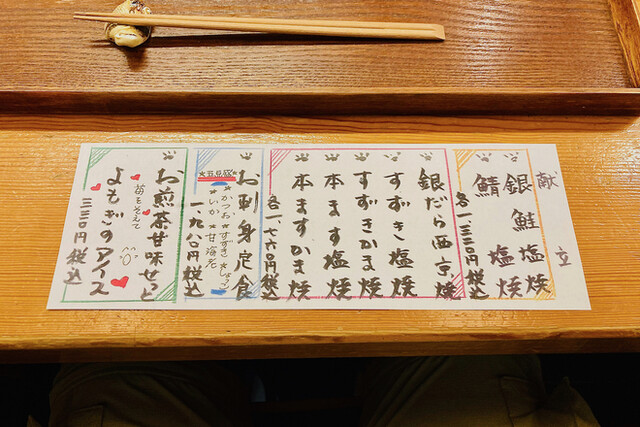 献立
銀鮭塩焼
鯖塩焼
各一、三二〇円税込
銀だら西京焼
すずき塩焼
すずきかま焼
本ます塩焼
本ますかま焼
各一、七六〇円税込
お刺身定食
かつお
すずき
いか
甘海老
一、九八〇円税込
お煎茶甘味せっと
苺をそえて
よもぎのアイス
三三〇円税込